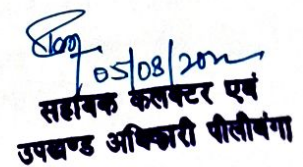 05/08/20
सहायक कलक्टर एवं
उपखण्ड अधिकारी पीलीबंगा